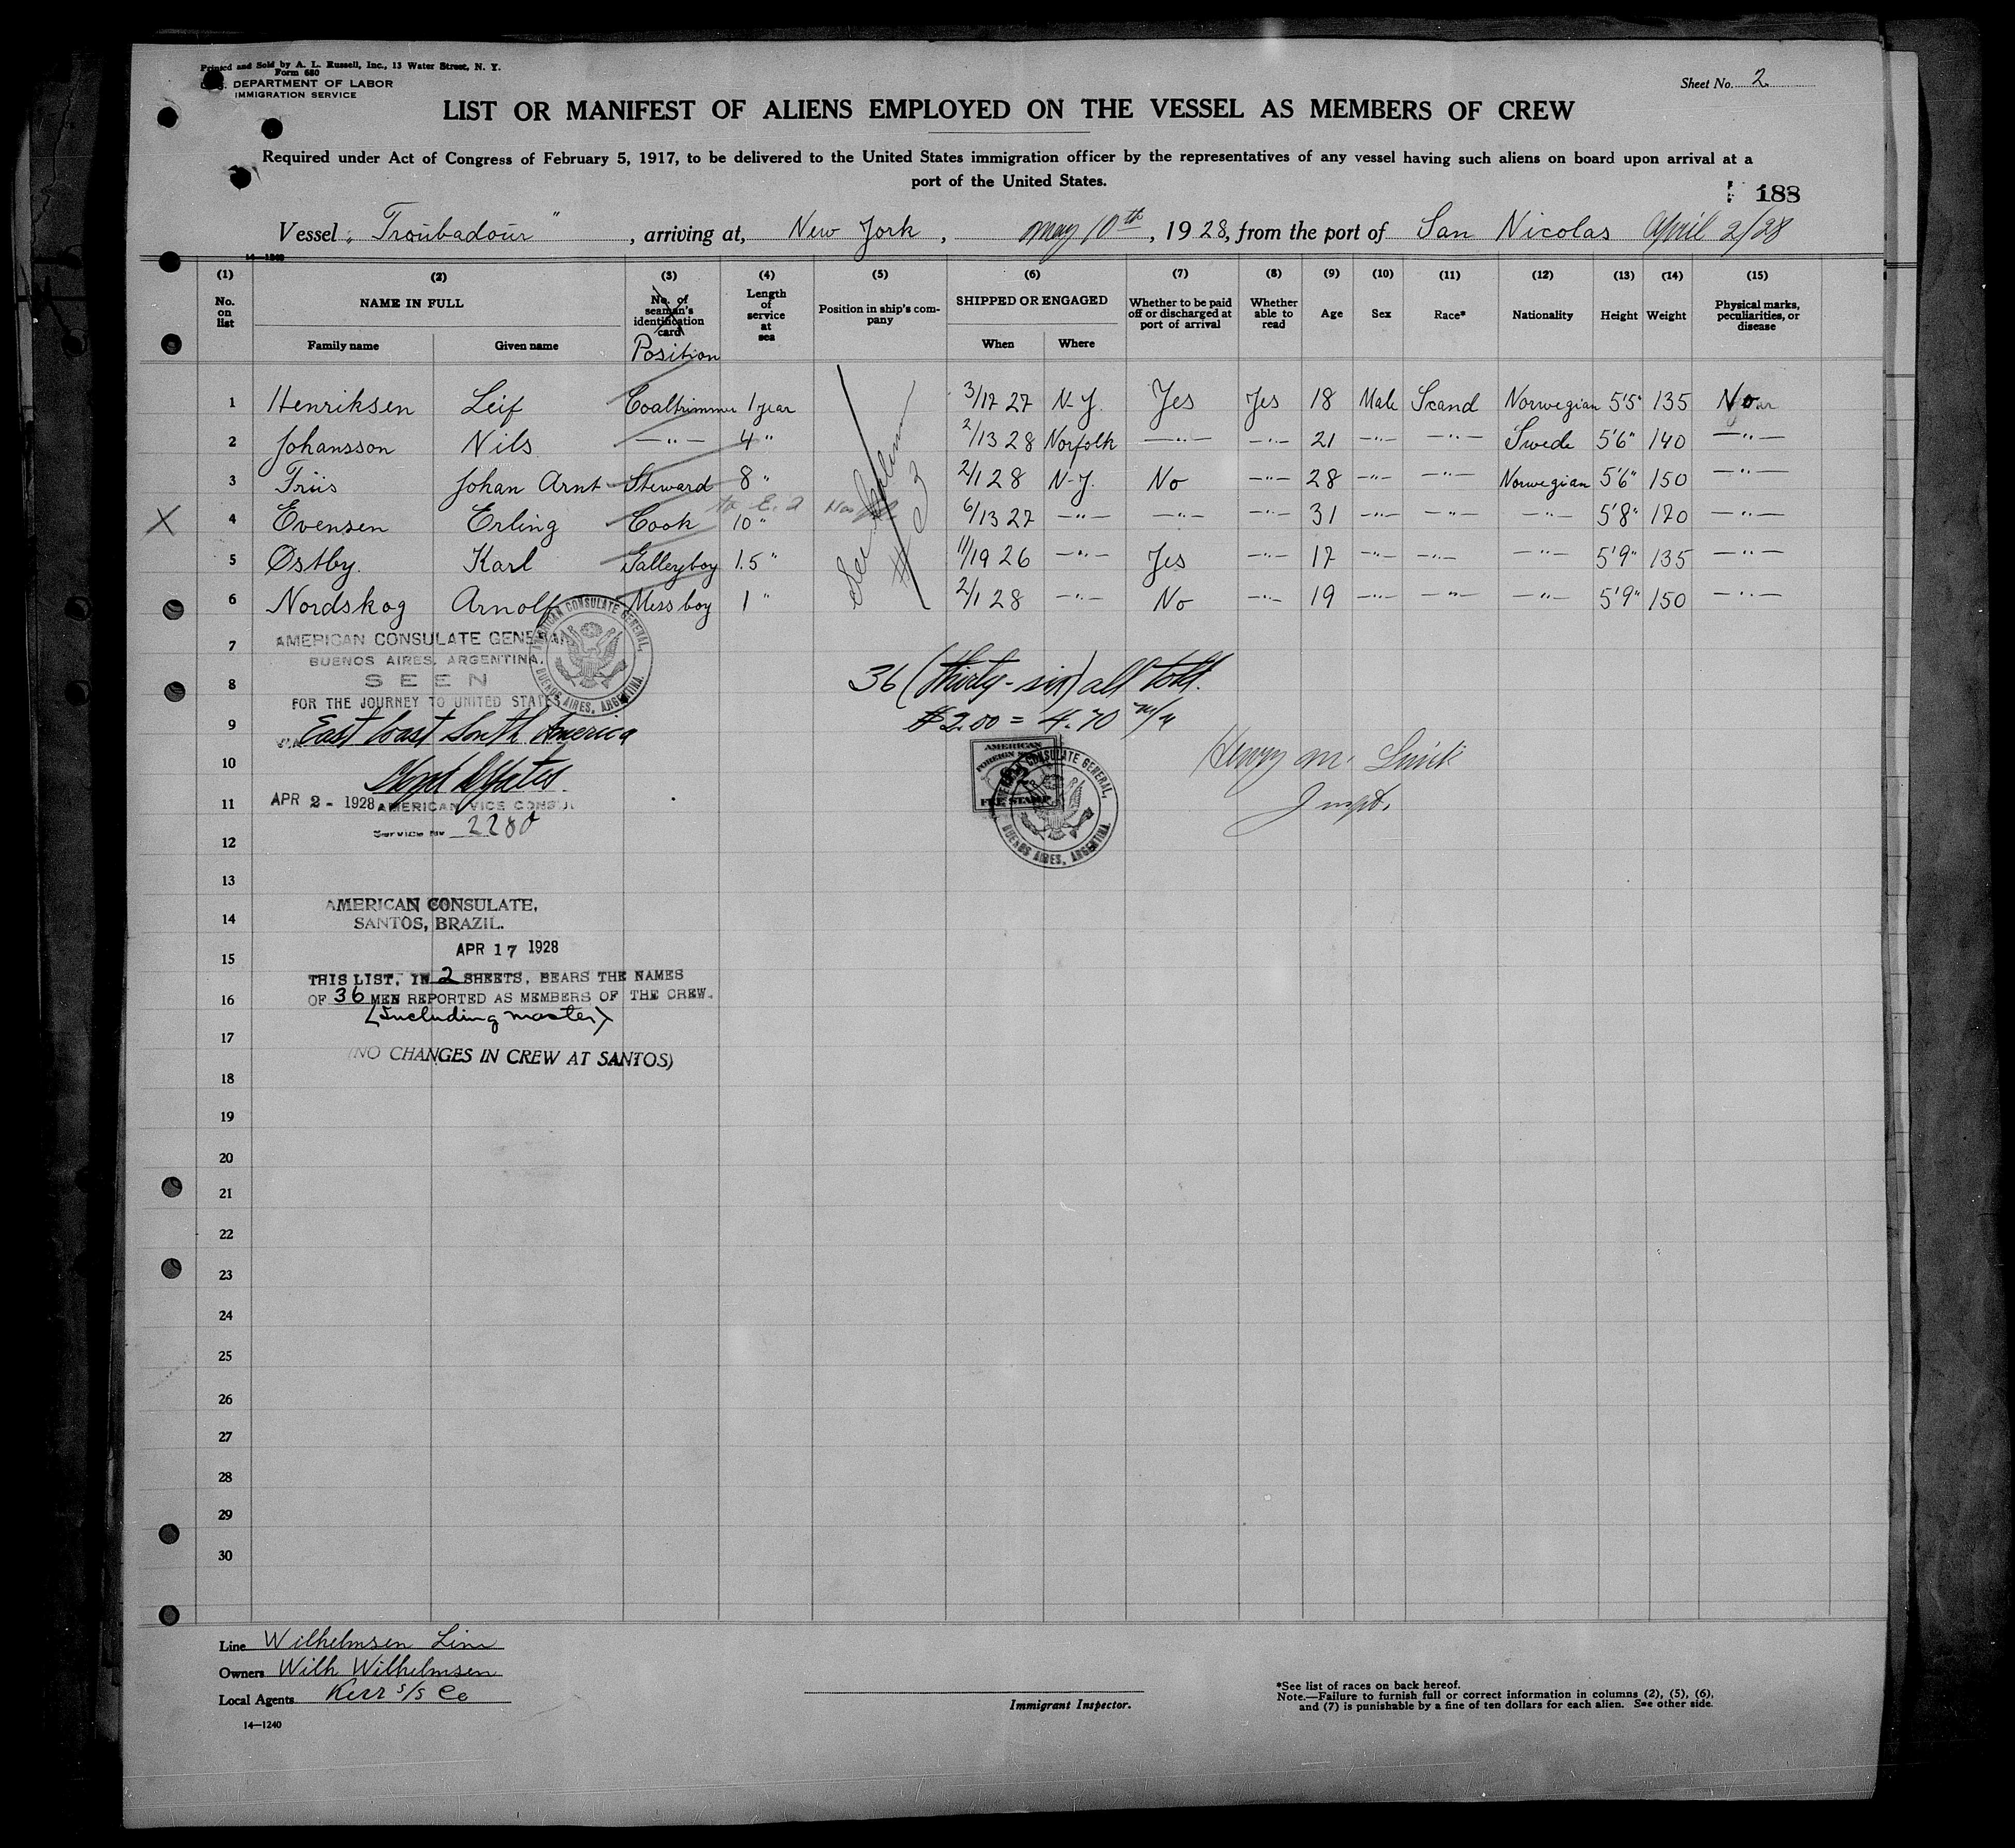 Printed and Sold by A. L. Russell, Inc., 13 Water Street, N. Y.
Form 680
U. S. DEPARTMENT OF LABOR
IMMIGRATION SERVICE
Sheet No. 2
LIST OR MANIFEST OF ALIENS EMPLOYED ON THE VESSEL AS MEMBERS OF CREW
Required under Act of Congress of February 5, 1917, to be delivered to the United States immigration officer by the representatives of any vessel having such aliens on board upon arrival at a
port of the United States.
188
Vessel "Troubadour", arriving at, New York, May 10th, 1928, from the port of San Nicolas April 2/28
14—1240
(1) (2) (3) (4) (5) (6) (7) (8) (9) (10) (11) (12) (13) (14) (15)
No. on list NAME IN FULL No. of seaman's identification card Length of service at sea Position in ship's company SHIPPED OR ENGAGED Whether to be paid off or discharged at port of arrival Whether able to read Age Sex Race* Nationality Height Weight Physical marks, peculiarities, or disease
Family name Given name Position When Where
1 Henriksen Leif Coaltrimmer 1 year 3/17 27 N-Y. Yes Yes 18 Male Scand Norwegian 5'5" 135 No
2 Johansson Nils —"— 4 " 2/13 28 Norfolk —"— —"— 21 —"— —"— Swede 5'6" 140 —"—
3 Friis Johan Arnt Steward 8 " 2/1 28 N-Y. No —"— 28 —"— —"— Norwegian 5'6" 150 —"—
X 4 Evensen Erling Cook 10 " 6/13 27 —"— —"— —"— 31 —"— —"— —"— 5'8" 170 —"—
5 Østby. Karl Galleyboy 1.5 " 11/19 26 —"— Yes —"— 17 —"— —"— —"— 5'9" 135 —"—
6 Nordskog Arnolf Messboy 1 " 2/1 28 —"— No —"— 19 —"— —"— —"— 5'9" 150 —"—
See Column # 3
7
AMERICAN CONSULATE GENERAL
BUENOS AIRES, ARGENTINA.
8
SEEN
FOR THE JOURNEY TO UNITED STATES
AMERICAN CONSULATE GENERAL, BUENOS AIRES, ARGENTINA.
36 (thirty-six) all told.
9
East Coast South America
$2.00 = 4.70 m/n
10
AMERICAN FOREIGN SERVICE
FEE STAMP
AMERICAN CONSULATE GENERAL, BUENOS AIRES, ARGENTINA.
Henry M.
11
APR 2 - 1928 AMERICAN VICE CONSUL
Service No 2280
12
13
AMERICAN CONSULATE,
14
SANTOS, BRAZIL.
APR 17 1928
15
THIS LIST, IN 2 SHEETS, BEARS THE NAMES
16
OF 36 MEN REPORTED AS MEMBERS OF THE CREW.
(Including master)
17
(NO CHANGES IN CREW AT SANTOS)
18
19
20
21
22
23
24
25
26
27
28
29
30
Line Wilhelmsen Line
Owners Wilh Wilhelmsen
Local Agents Kerr S/S Co
14—1240
Immigrant Inspector.
*See list of races on back hereof.
Note.—Failure to furnish full or correct information in columns (2), (5), (6),
and (7) is punishable by a fine of ten dollars for each alien. See other side.